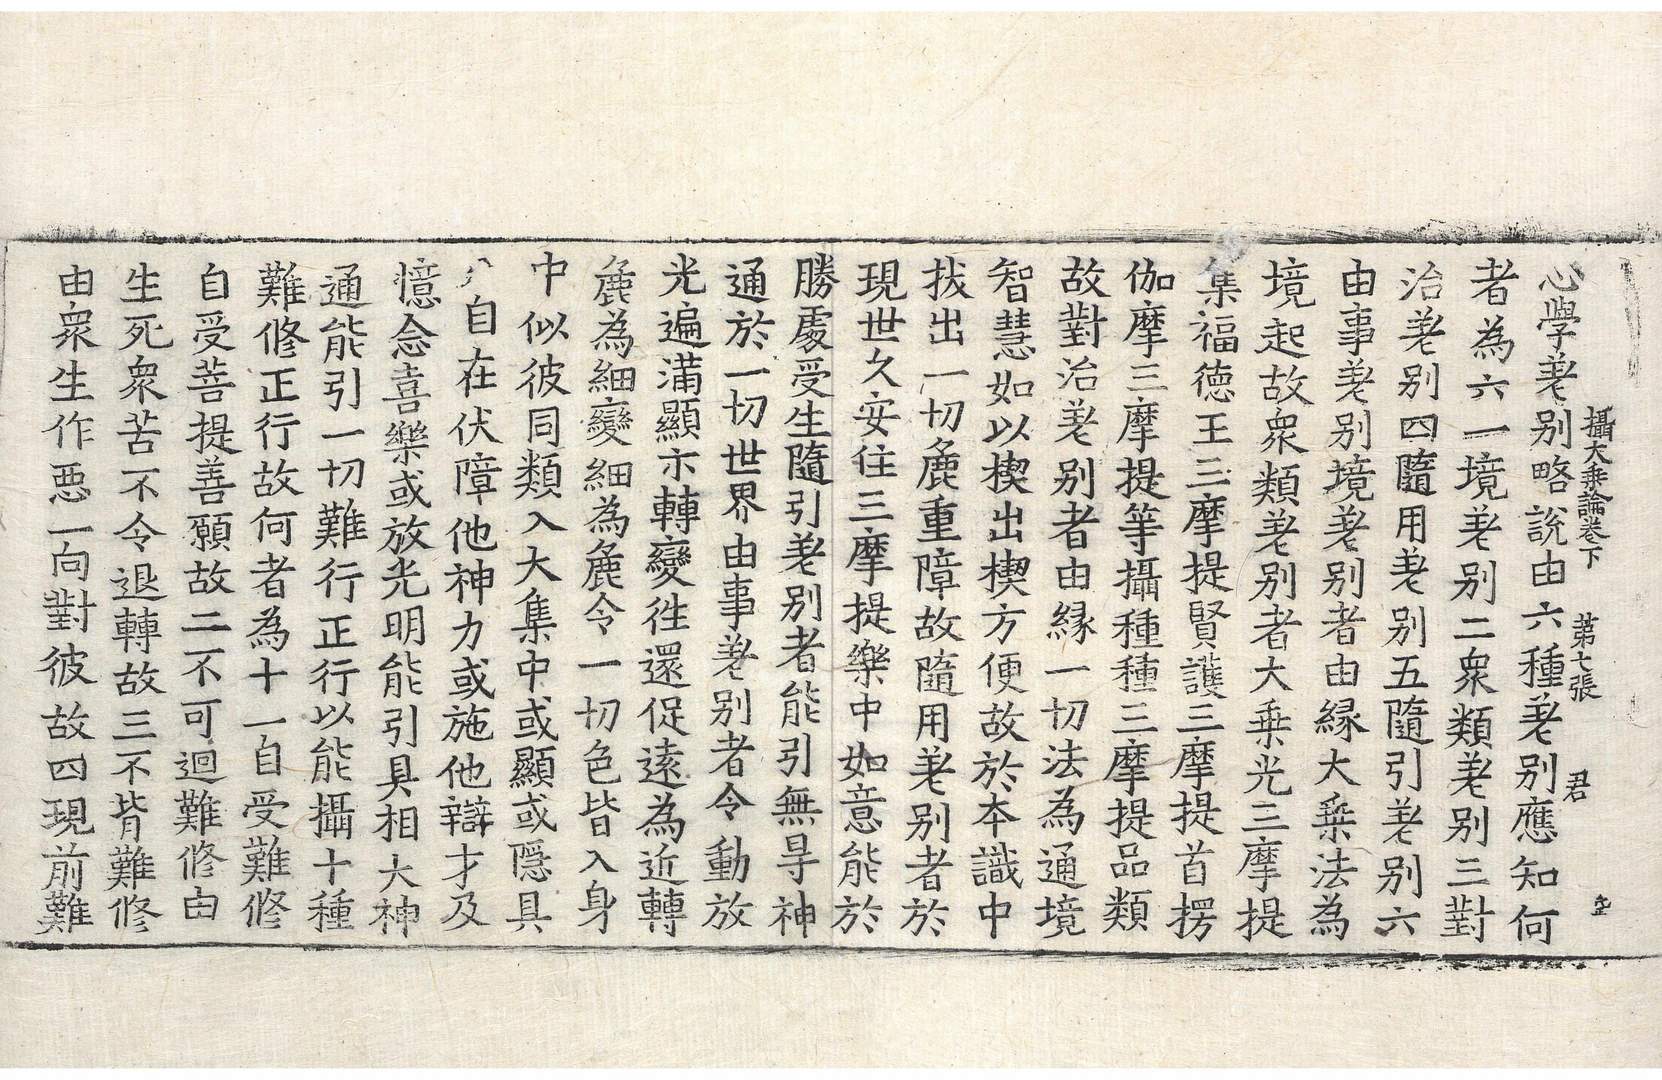 攝大乗論卷下　第七張　君
心學差别略說由六種差别應知何
者為六一境差别二衆類差别三對
治差别四隨用差别五隨引差别六
由事差别境差别者由縁大乗法為
境起故衆類差别者大乗光三摩提
集福德王三摩提賢護三摩提首楞
伽摩三摩提等攝種種三摩提品類
故對治差别者由縁一切法為通境
智慧如以楔出楔方便故於本識中
拔出一切麁重障故隨用差别者於
現世久安住三摩提樂中如意能於
勝處受生隨引差别者能引無㝵神
通於一切世界由事差别者令動放
光遍滿顯示轉變徃還促遠為近轉
麁為細變細為麁令一切色皆入身
中似彼同類入大集中或顯或隱具
八自在伏障他神力或施他辯才及
憶念喜樂或放光明能引具相大神
通能引一切難行正行以能攝十種
難修正行故何者為十一自受難修
自受菩提善願故二不可迴難修由
生死衆苦不令退轉故三不背難修
由衆生作惡一向對彼故四現前難